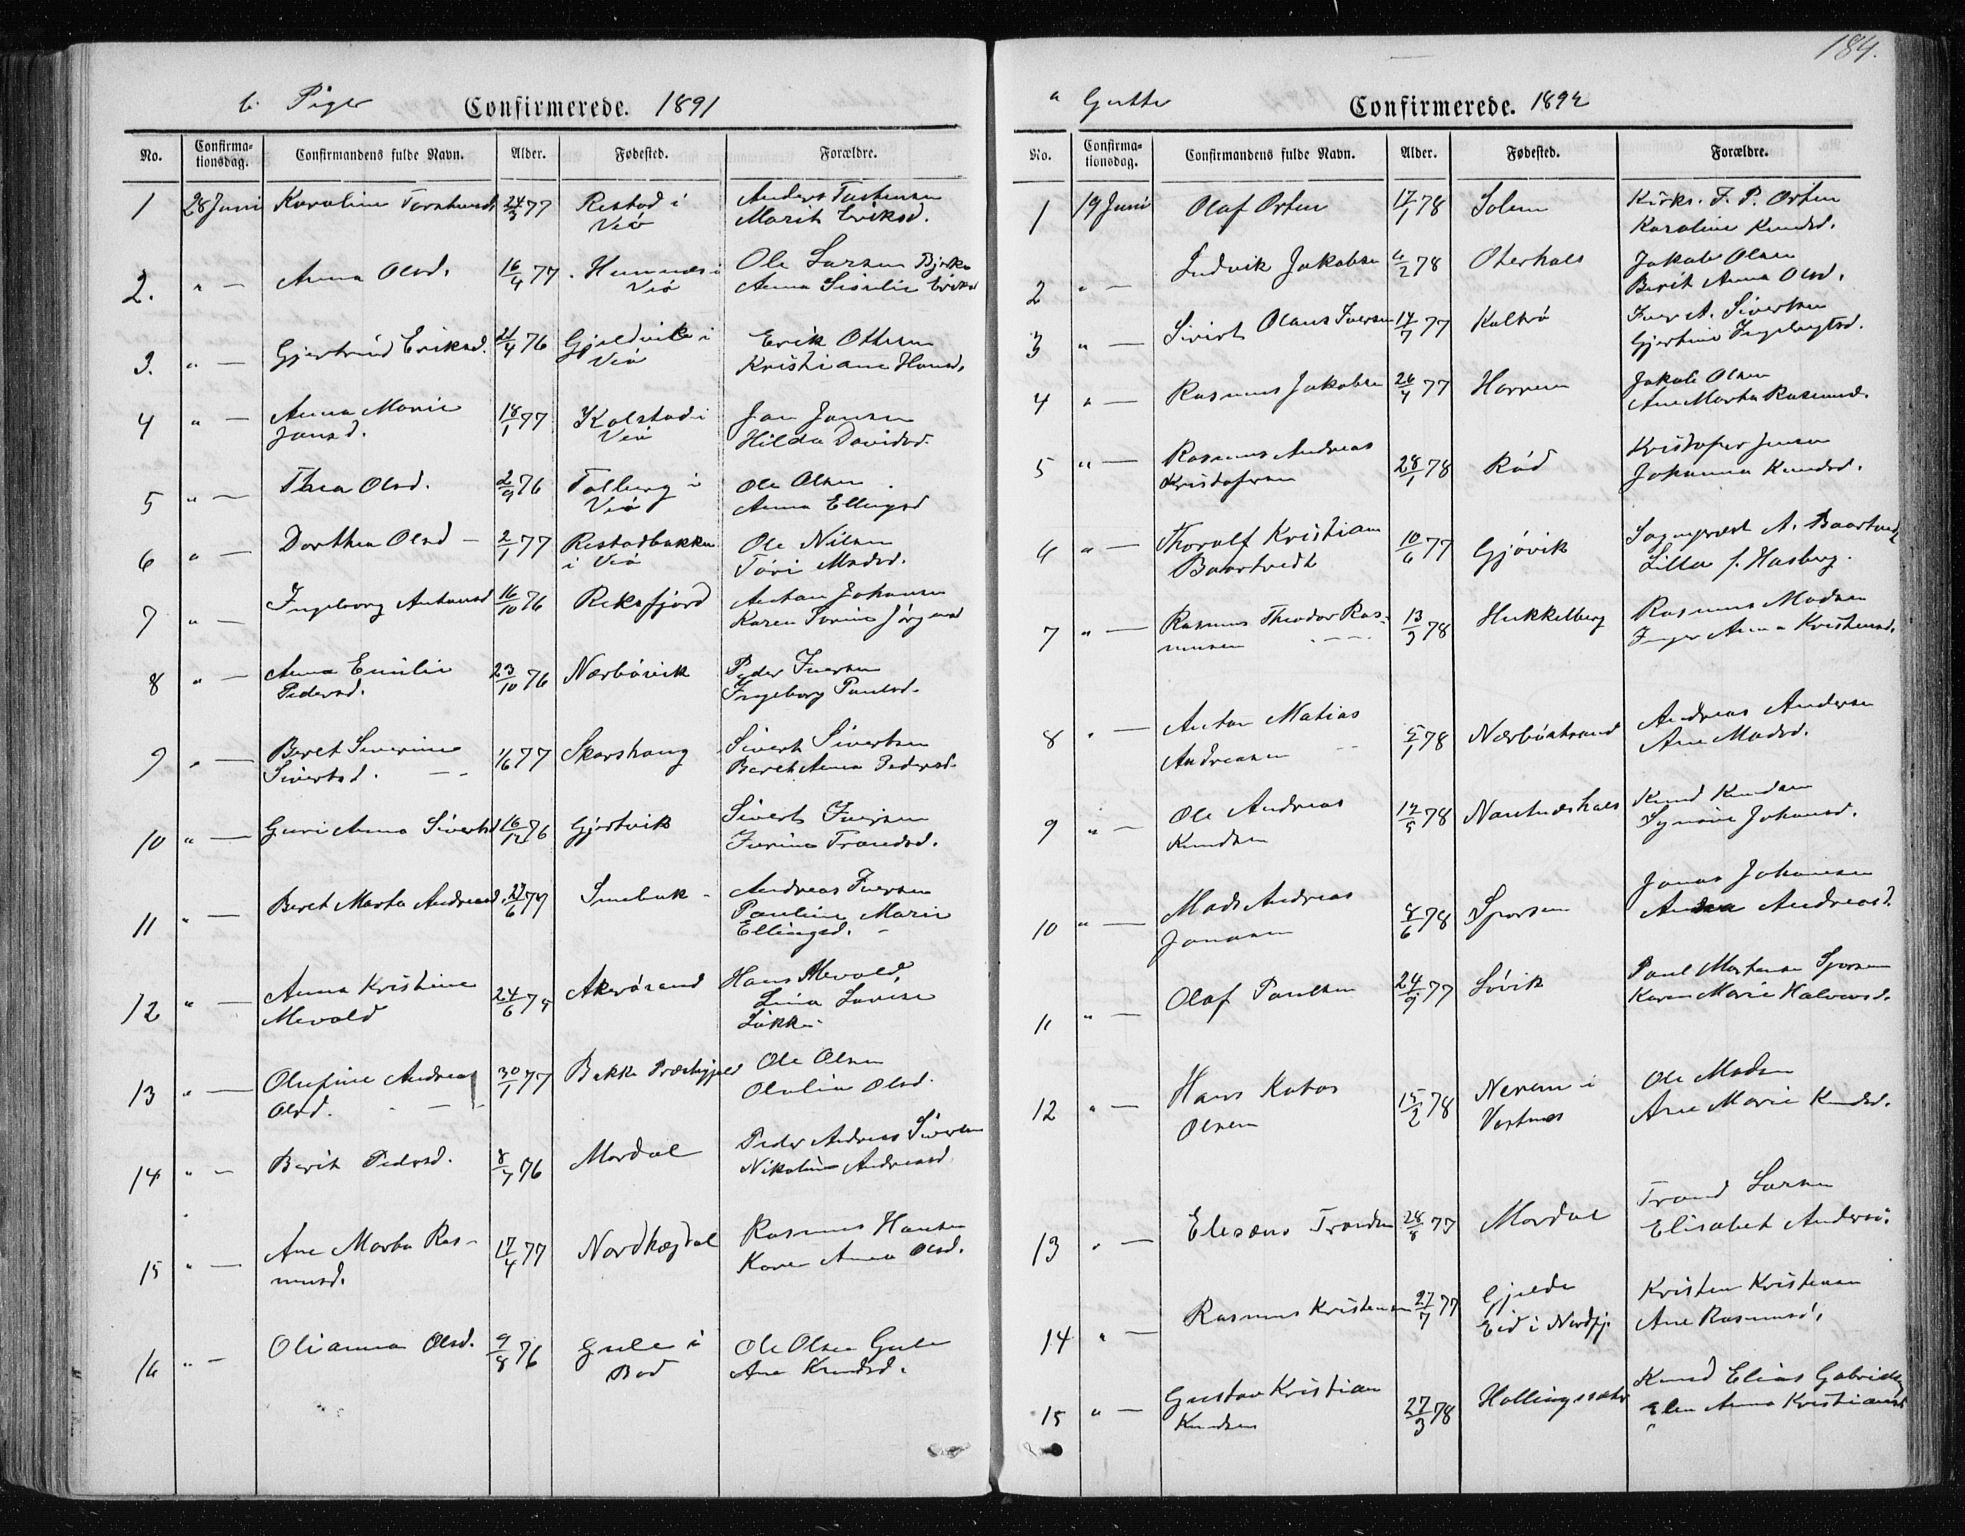 184.
b. Piger Confirmerede. 1891
No. Confirma-tionsdag. Confirmandens fulde Navn. Alder. Fødested. Forældre.
1 28 Juni Karoline 24/3 77 Restad i Anders Tostensen
Veø Marit Eriksd.
2. " — Anna Olsd. 16/4 77 Hemnes i Ole Larsen Bjerke
Veø Anna Eriksd
3. " — Gjertrud Eriksd. 21/4 76 Gjeldvike i Erik Ottesen
Veø Kristiane Hansd.
4 " — Anna Marie 18/1 77 Kolstad i Jon Jonsen
Jonsd. Veø Hilda Davidsd.
5 " — Thea Olsd. 2/9 76 Tolberg i Ole Olsen
Veø Anna Ellingsd
6 " — Dorthea Olsd — 2/1 77 Restadbakken Ole Nilsen
i Veø Madsd.
7 " — Ingeborg Antonsd 16/10 76 Reksfjord Anton Johansen
Karen Jørgensd
8 " — Anna Emilie 23/10 76 Nærbøvik Peder Iversen
Pedersd. Ingeborg Paulsd.
9 " — Beret Severine 1/6 77 Skarshaug Sivert Sivertsen
Sivertsd. Beret Anna Pedersd.
10 " — Guri Anna Sivertsd 16/12 76 Gjertvik Sivert Iversen
Iverine Trondsd.
11 " — Beret Marta Andreasd. 27/6 77 Andreas Iversen
Pauline Marie
Ellingsd.
12 " — Anna Kristine 24/6 Akerøsund Hans Mevold,
Mevold Lina Lovise
Løkke
13 " — Olufine Andrea 30/1 77 Bakke Ole Olsen
Olsd. Olulia Olsd.
14 " — Berit Pedersd. 8/7 76 Mordal Peder Andreas Sivertsen
Nikoline Andreasd
15 " — Ane Marta Ras- 17/4 77 Nordhagdal Rasmus Hansen
musd. Karen Anna Olsd.
16 " — Olianna Olsd. 9/8 76 Gule i Ole Olsen Gule
Bod Ane Knudsd.
a Gutter Confirmerede. 1892
No. Confirma-tionsdag. Confirmandens fulde Navn. Alder. Fødested. Forældre.
1 19 Juni Olaf Orten 17/1 78 Solem Kirks. F. P. Orten
Karoline Knudsd.
2 " — Ludvik Jakobsen 6/2 78 Oterhals Jakob Olsen
Berit Anna Olsd.
3 " — Sivert Olaus Iversen 14/7 77 Kaltrø Iver A. Sivertsen
Gjertine Ingebrigtsd.
4 " — Rasmus Jakobsen 26/7 77 Harrem Jakob Olsen
Ane Marta Rasmusd.
5 " — Rasmus Andreas 28/1 78 Rød Kristofer Jensen
Kristofersen Johanna Knudsd.
6 " — Thoralf Kristian 10/6 77 Gjøvik Sogneprest A. Baartvedt
Baartvedt Lilla f. Hasberg.
7 " — Rasmus Theodor Ras- 13/3 78 Hukkelberg Rasmus Madsen
mussen Inger Anna Kristensd.
8 " — Anton Matias 5/1 78 Nærbøstrand Andreas Andersen
Andreasen Ane Madsd.
9 " — Ole Andreas 12/5 78 Nautneshals Knud Knudsen
Knudsen Synøve Johansd.
10 " — Mads Andreas 8/6 78 Sporsem Jonas Johansen
Jonasen Andrea Andreasd.
11 " — Olaf Paulsen 24/9 77 Søvik Paul Mortensen Sporsem
Karen Marie Halvorsd.
12 " — Hans Kabos 15/2 78 Nerem i Ole Madsen
Olsen Vestnes Ane Marie Knudsd.
13 " — Elesæus Trondsen 28/8 77 Mordal Trond Larsen
Elisabet Andersd.
14 " — Rasmus Kristensen 27/7 77 Gjelde Kristen Kristensen
Eid i Nordfj. Ane Rasmusd,
15 " — Gustav Kristian 27/3 78 Hollingssæter Knud Elias Gabrielsen
Knudsen Elen Anna Kristiansd